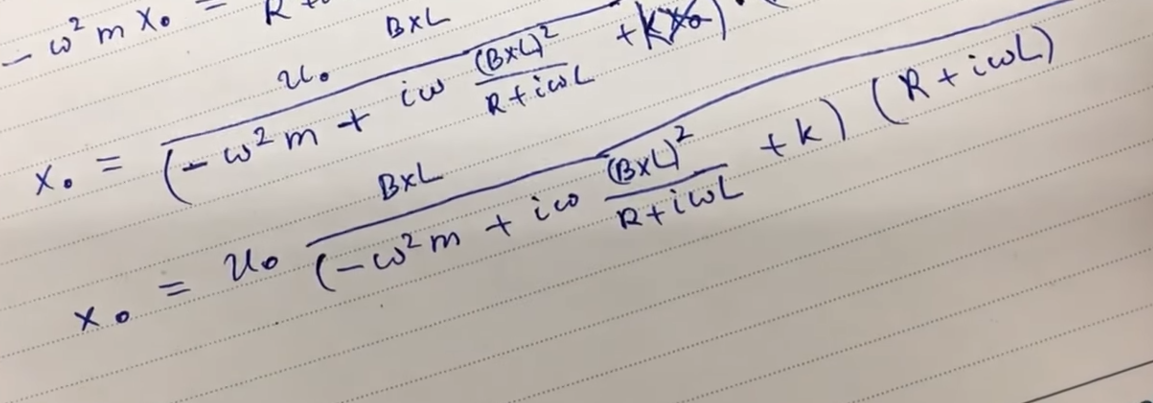 - ω² m x₀ = R
u₀ B×L
x₀ = (- ω² m + iω (B×L)² / R + iωL + k)
x₀ = u₀ B×L / (-ω² m + iω (B×L)² / R + iωL + k) (R + iωL)